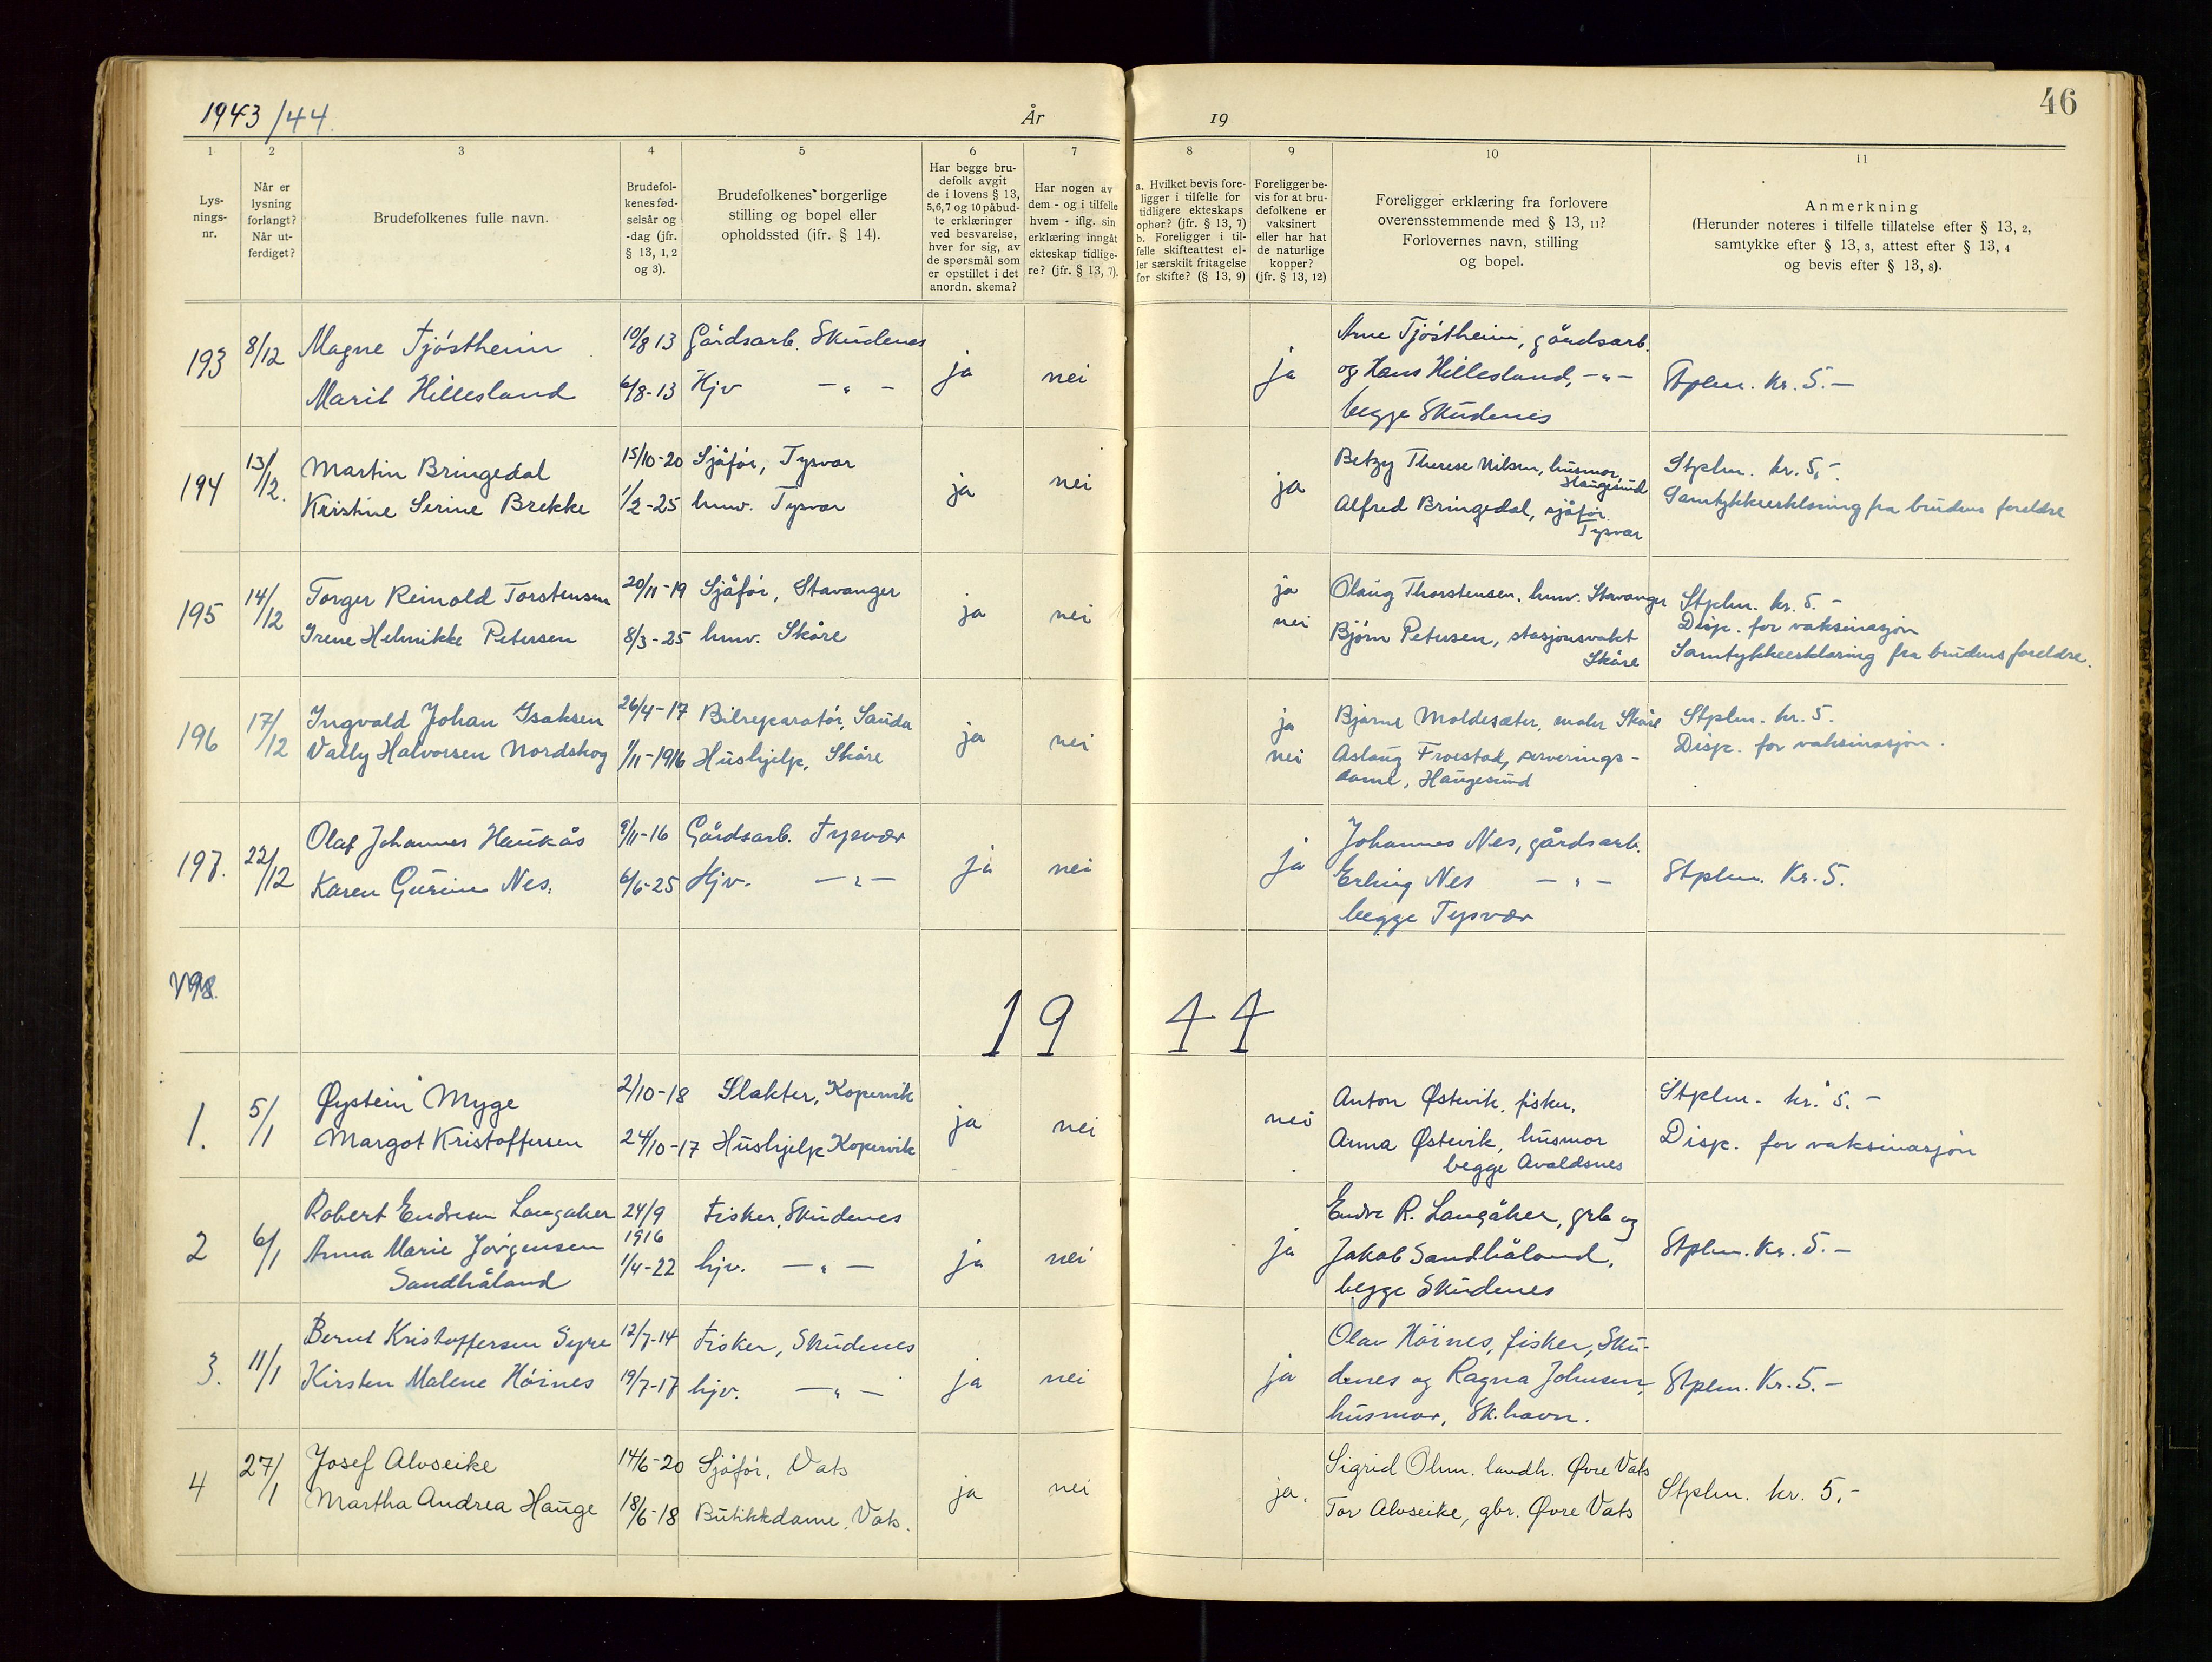 1943/44.
År
19
46
1 2 3 4 5 6 7 8 9 10 11
Lys-
nings-
nr.
Når er
lysning
forlangt?
Når ut-
ferdiget?
Brudefolkenes fulle navn.
Brudefol-
kenes fød-
selsår og
-dag (jfr.
§ 13, 1, 2
og 3).
Brudefolkenes borgerlige
stilling og bopel eller
opholdssted (jfr. § 14).
Har begge bru-
defolk avgit
de i lovens § 13,
5,6,7 og 10 påbud-
te erklæringer
ved besvarelse,
hver for sig, av
de spørsmål som
er opstillet i det
anordn. skema?
Har nogen av
dem - og i tilfelle
hvem - iflg. sin
erklæring inngåt
ekteskap tidlige-
re? (jfr. § 13, 7).
a. Hvilket bevis fore-
ligger i tilfelle for
tidligere ekteskaps
ophør? (jfr. § 13, 7)
b. Foreligger i til-
felle skifteattest el-
ler særskilt fritagelse
for skifte? (§ 13, 9)
Foreligger be-
vis for at bru-
defolkene er
vaksinert
eller har hat
de naturlige
kopper?
(jfr. § 13, 12)
Foreligger erklæring fra forlovere
overensstemmende med § 13, 11?
Forlovernes navn, stilling
og bopel.
Anmerkning
(Herunder noteres i tilfelle tillatelse efter § 13, 2,
samtykke efter § 13, 3, attest efter § 13, 4
og bevis efter § 13, 8).
193 8/12 Magne Tjøstheim 10/8 13 Gårdsarb. Skudenes
Marit Hillesland 6/8-13 Hjv — " —
ja nei ja
Arne Tjøstheim, gårdsarb.
og Hans Hillesland, — " —
begge Skudenes
Stplm. Kr. 5.—
194 13/12. Martin Bringedal 15/10-20 Sjåfør, Tysvær
Kristine Serine Brekke 1/2-25 hmv. Tysvær
ja nei ja
Betzy Therese Nilsen, husmor,
Haugesund
Alfred Bringedal, sjåfør.
Tysvær
Stplm. kr. 5,-.
Samtykkeerklæring fra brudens foreldre
195 14/12 Torger Reinold Torstensen 20/11-19 Sjåfør, Stavanger
Irene Helmikke Petersen 8/3-25 hmv. Skåre
ja nei ja
nei
Olaug Thorstensen, hmv. Stavanger
Bjørn Petersen, stasjonsvakt
Skåre
Stplm. kr. 5.-
Disp. for vaksinasjon
Samtykkeerklæring fra brudens foreldre.
196 17/12 Ingvald Johan Isaksen 26/4-17 Bilreparatør, Sauda
Vally Halvorsen Nordskog 1/11-1916 Hushjelp, Skåre
ja nei ja
nei
Bjarne Moldesæter, maler Skåre
Aslaug Froestad, serverings-
dame, Haugesund
Stplm. kr. 5.
Disp. for vaksinasjon.
197. 22/12 Olaf Johannes Haukås 9/11-16 Gårdsarb. Tysvær
Karen Gurine Nes. 6/6-25 Hjv. — " —
ja nei ja
Johannes Nes, gårdsarb.
Erling Nes — " —
begge Tysvær
Stplm. Kr. 5.
198.
1944
1. 5/1 Øystein Myge 2/10-18 Slakter, Kopervik
Margot Kristoffersen 24/10-17 Hushjelp Kopervik
ja nei nei
Anton Østevik, fisker,
Anna Østevik, husmor
begge Avaldsnes
Stplm. kr. 5.-
Disp. for vaksinasjon
2 6/1 Robert Endresen Langåker 24/9 1916 Fisker, Skudenes
Anna Marie Jørgensen
Sandhåland 1/4-22 hjv. — " —
ja nei ja
Endre R. Langåker, grb og
Jakob Sandhåland,
begge Skudenes
Stplm. Kr. 5.—
3. 11/1 Bernt Kristoffersen Syre 12/7-14 Fisker, Skudenes
Kirsten Malene Høines 19/7-17 hjv. — " —
ja nei ja
Olav Høines, fisker, Sku-
denes og Ragna Johnsen,
husmor, Sk.havn.
Stplm. Kr. 5.—
4 27/1 Josef Alvseike 14/6-20 Sjåfør, Vats
Martha Andrea Hauge 18/6-18 Butikkdame, Vats.
ja nei ja.
Sigrid Ohm. landh. Øvre Vats
Tor Alvseike, gbr. Øvre Vats
Stplm. kr. 5,-